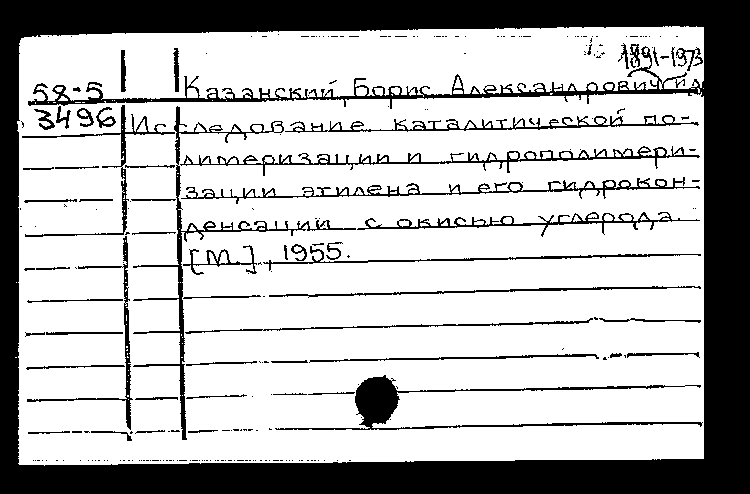 1891-1973
58-5 Казанский, Борис Александрович
3496 Исследование каталитической по-
лимеризации и гидрополимери-
зации этилена и его гидрокон-
денсации с окисью углерода.
[М.], 1955.